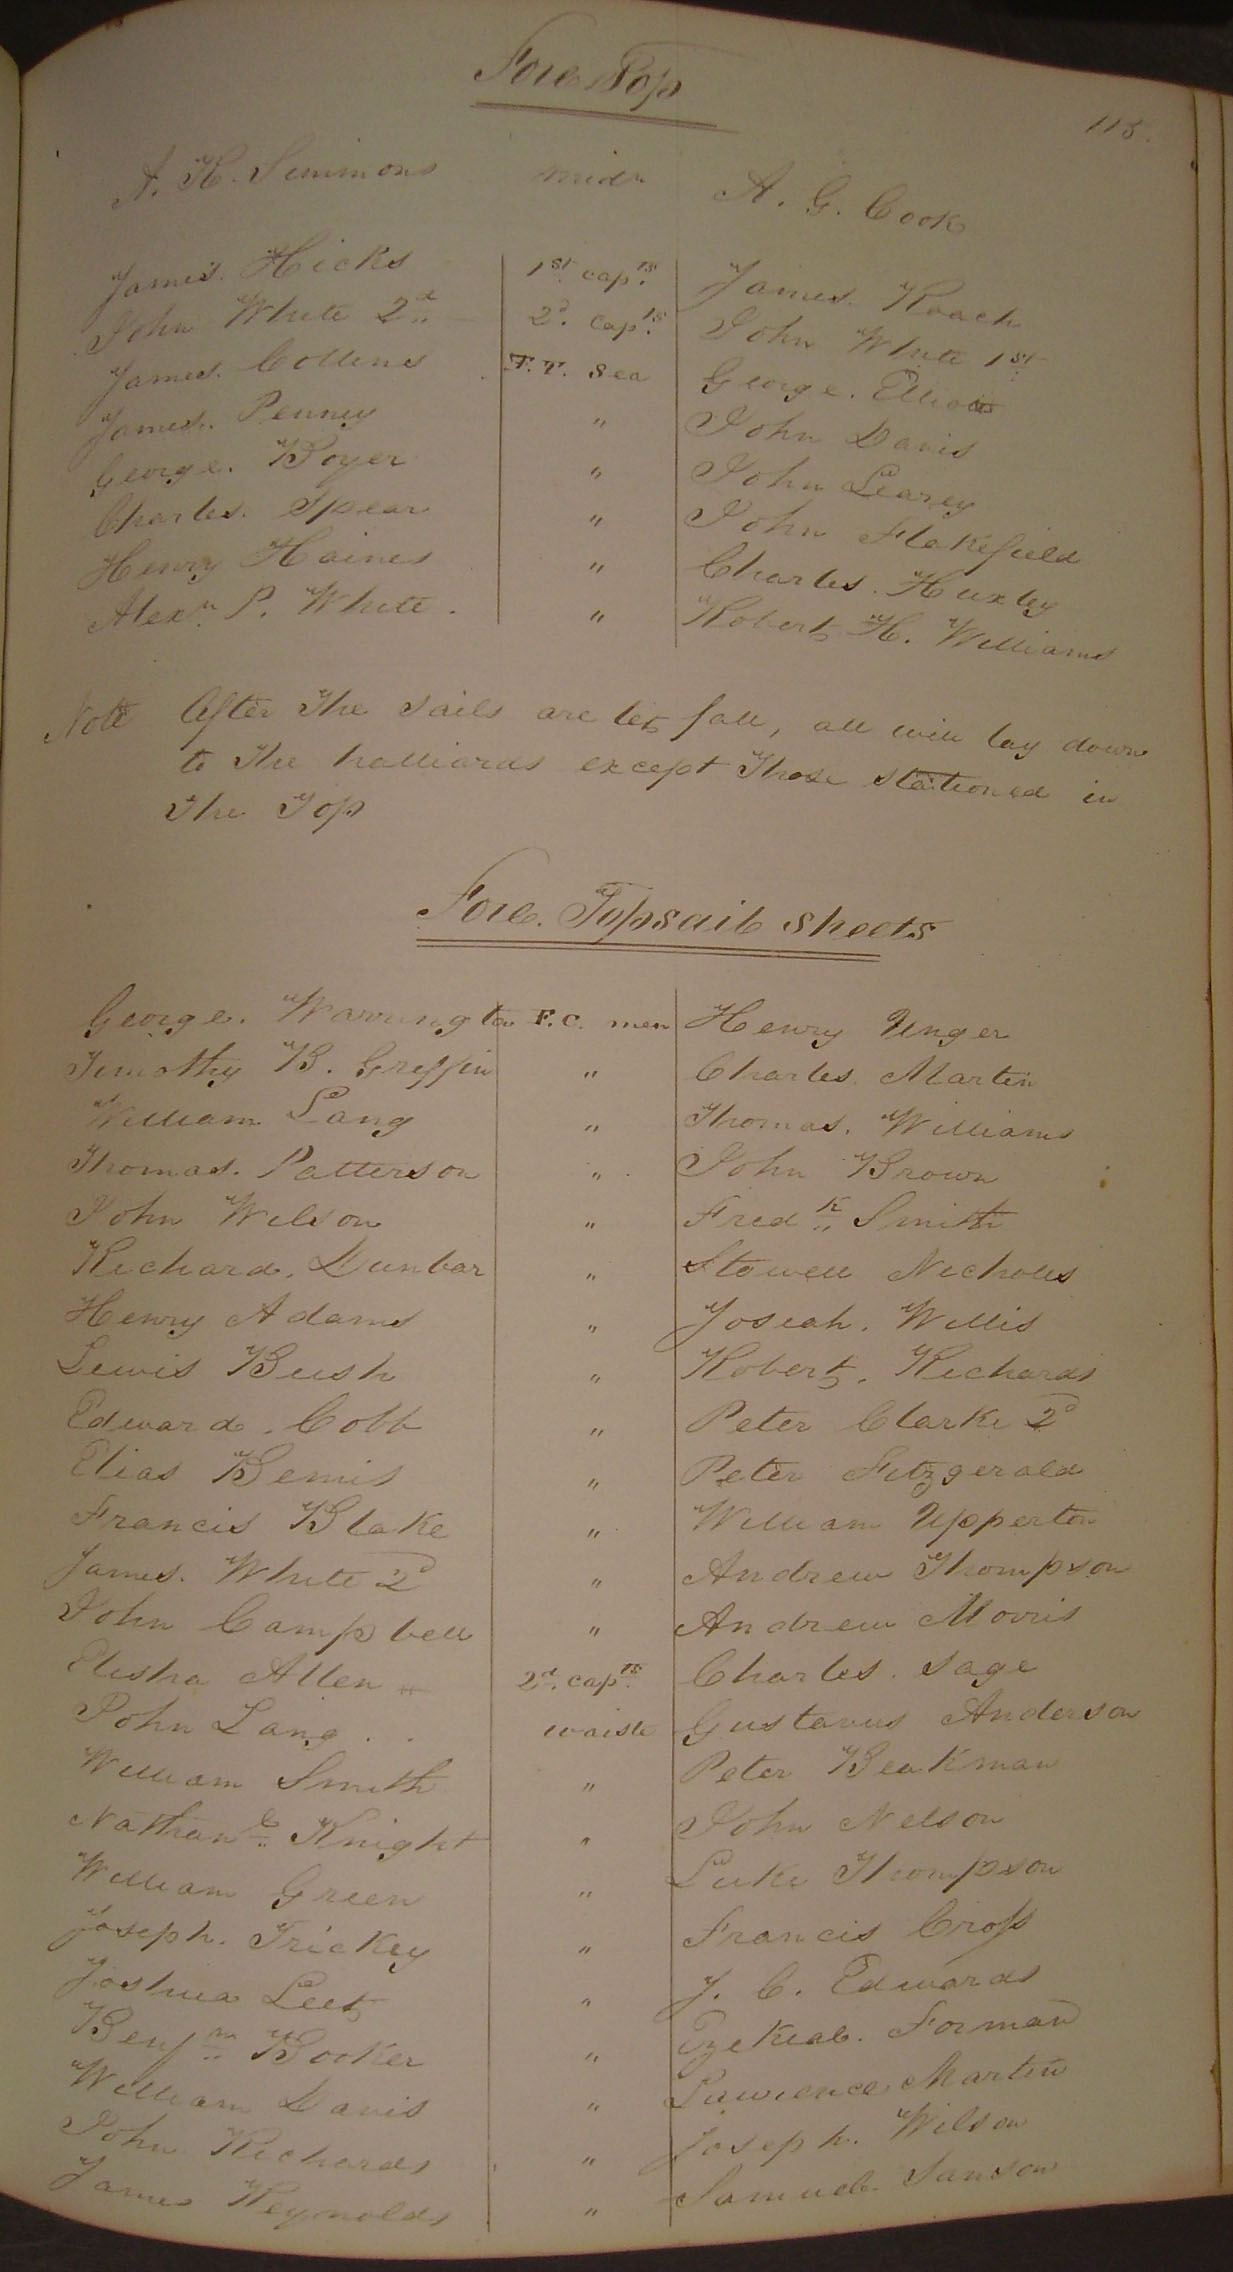 Fore Top
115.
A. H. Simmons midn A. G. Cook
James. Hicks 1st capts. James. Roach
John White 2d 2d. capts. John White 1st
James. Collins F. T. Sea George. Elliott
James. Penney " John Davis
George. Boyer " John Learey
Charles. Spear " John Flakefield
Henry Haines " Charles. Huxley
Alexr P. White. " Robert H. Williams
Note After The Sails are let fall, all will lay down
to The halliards except Those stationed in
The Top
Fore. Topsail Sheets
George. Warrington F.C. men Henry Unger
Timothy B. Greffin " Charles. Martin
William Lang " Thomas. Williams
Thomas. Patterson " John Brown
John Wilson " Fredk Smith
Richard. Dunbar " Stowell Nicholls
Henry Adams " Josiah. Willis
Lewis Bush " Robert. Richards
Edward. Cobb " Peter Clarke 2d
Elias Bemis " Peter Fitzgerald
Francis Blake " William Upperton
James. White 2d " Andrew Thompson
John Campbell " Andrew Morris
Elisha Allen " 2d. capts. Charles. Sage
John Lang . . waiste Gustavus Anderson
William Smith " Peter Beakman
Nathanl Knight " John Nelson
William Green " Luke Thompson
Joseph. Trickey " Francis Cross
Joshua Leet " J. C. Edwards
Benjm Booker " Ezekial. Forman
William Davis " Lawrence Martin
John Richards " Joseph. Wilson
James Reynolds " Samuel. Sanson